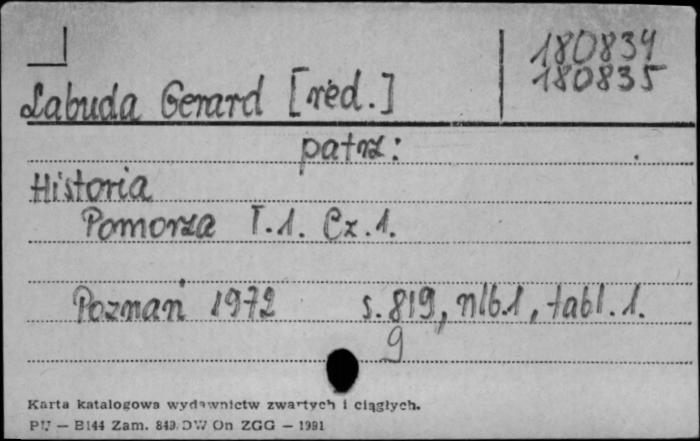 180834
180835
Labuda Gerard [red.]
patrz:
Historia
Pomorza T.1. Cz.1.
Poznań 1972 s. 819, nlb.1, tabl. 1.
9
Karta katalogowa wydawnictw zwartych i ciągłych.
PU — B144 Zam. 849/DW On ZGG — 1991